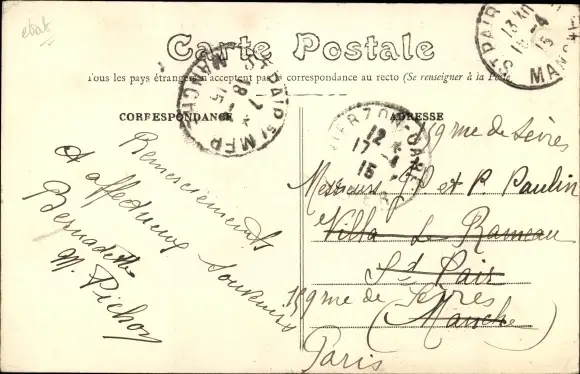 etat
Carte Postale
Tous les pays étrangers n'acceptent pas la correspondance au recto (Se renseigner à la Poste
CORRESPONDANCE
ADRESSE
Remerciements
et affectueux souvenirs
Bernadette
M. Pichon
159 rue de Sèvres
Messieurs J. P. et P. Paulin
Villa Le Rameau
St Pair
159 rue de Sèvres
(Manche)
Paris
ST PAIR S/ MER
MANCHE
18 - 4
15
ST PAIR
MANCHE
13
16 - 4
15
VIERZON-GARE
12
17 - 4
15